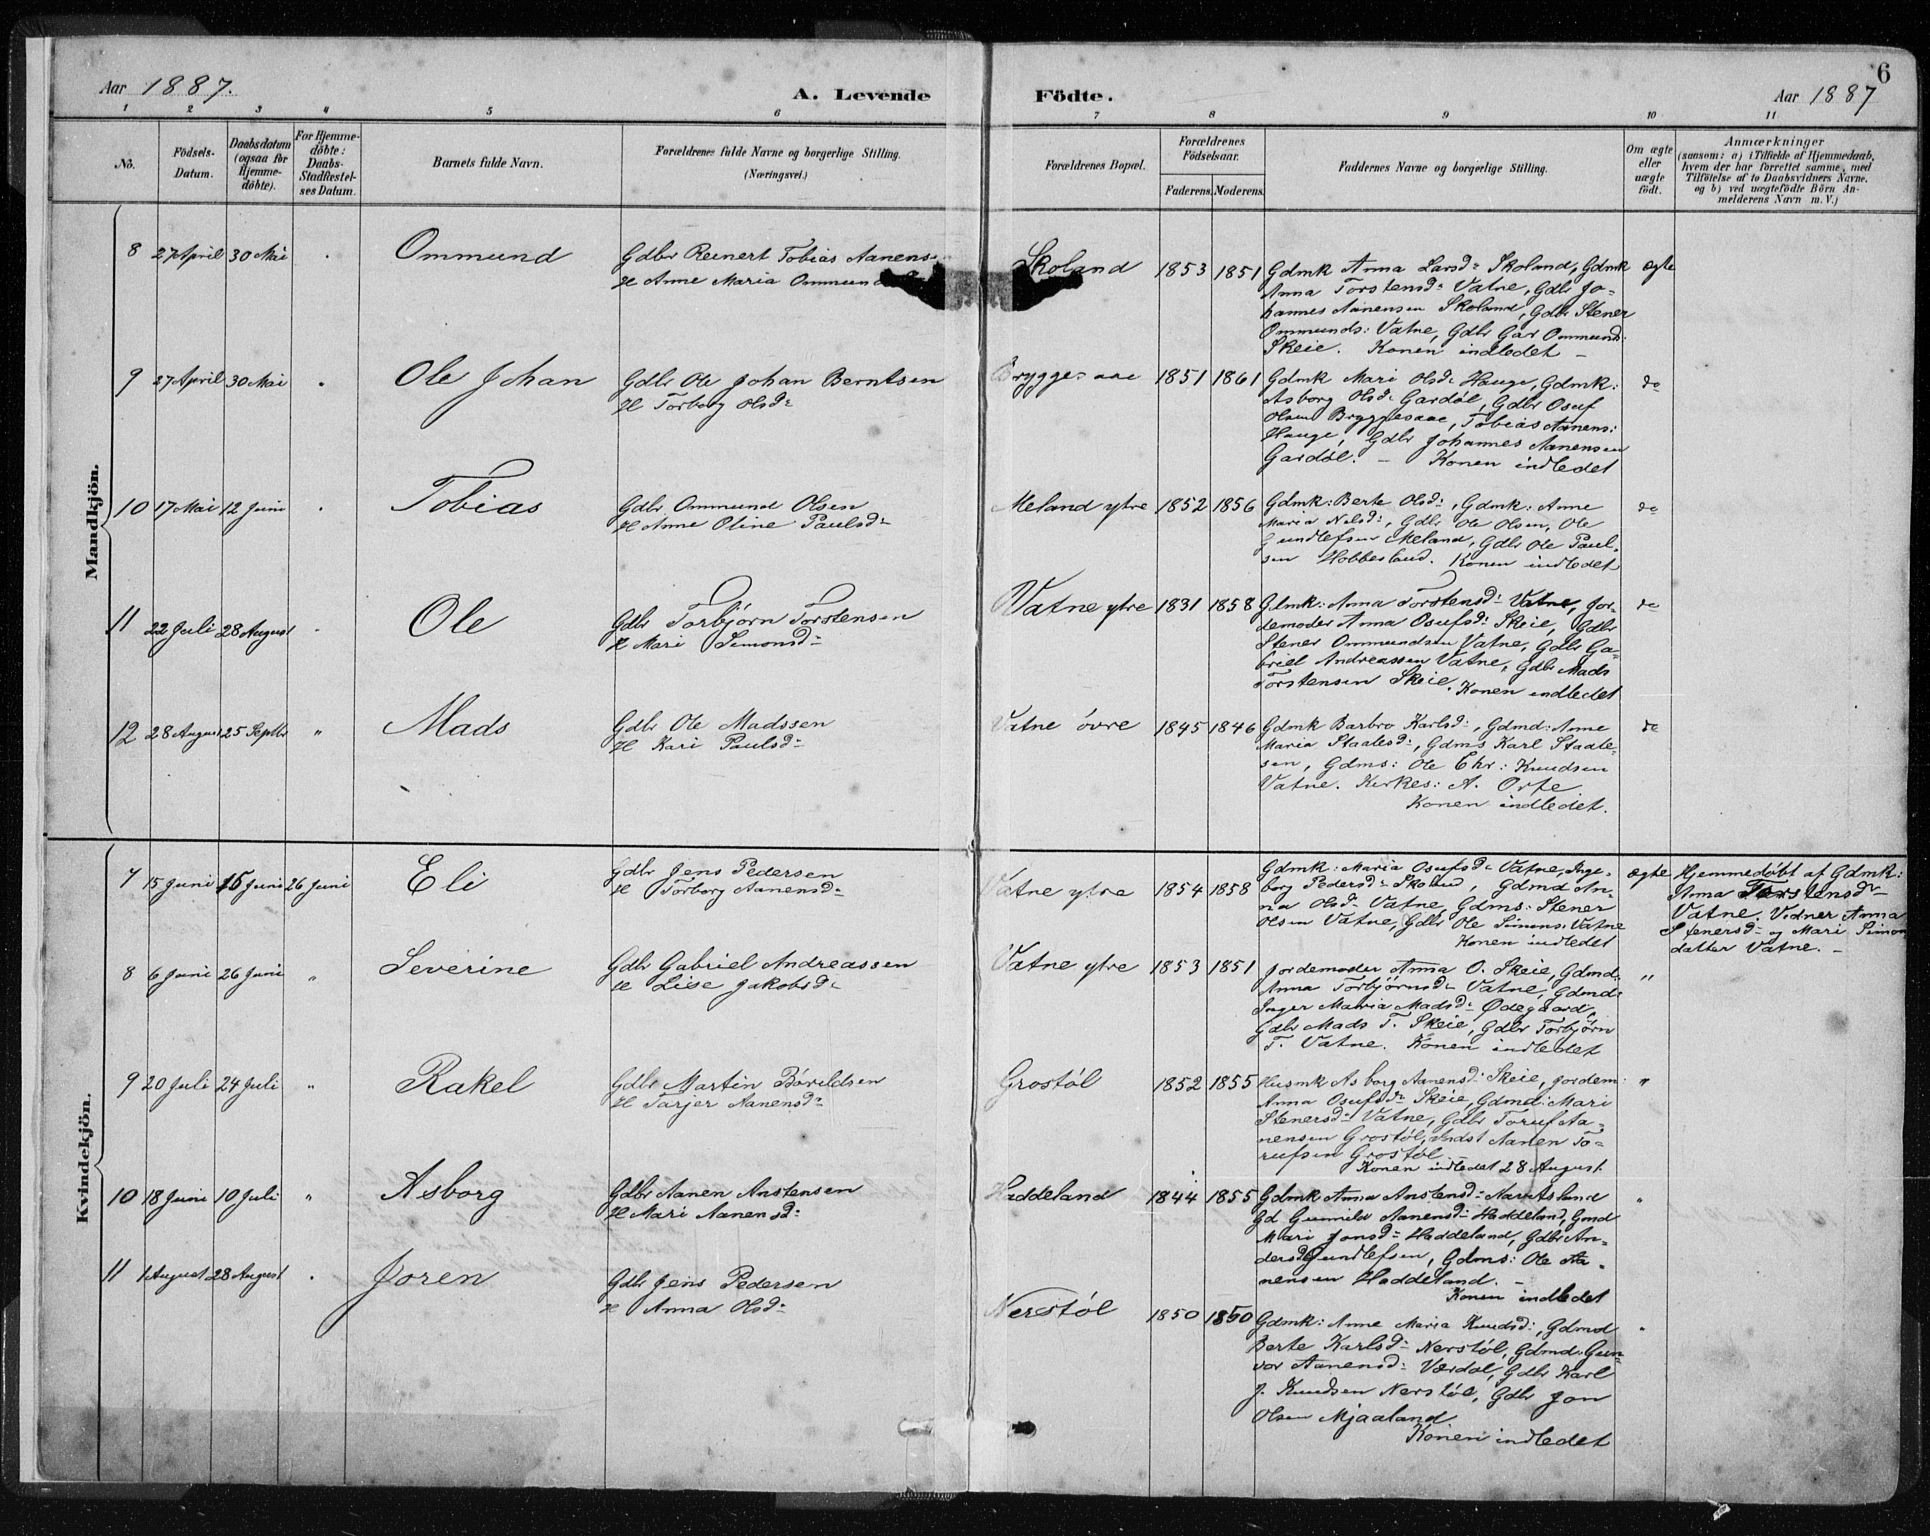 6
Aar 1887.
A. Levende Födte.
Aar 1887
1 2 3 4 5 6 7 8 9 10 11
No.
Födsels-
Datum.
Daabsdatum
(ogsaa for
Hjemme-
döbte).
For Hjemme-
döbte:
Daabs-
Stadfæstel-
ses Datum.
Barnets fulde Navn.
Forældrenes fulde Navne og borgerlige Stilling.
(Næringsvei.)
Forældrenes Bopæl.
Forældrenes
Födselsaar.
Faderens. Moderens.
Faddernes Navne og borgerlige Stilling.
Om ægte
eller
uægte
födt.
Anmærkninger
(saasom: a) i Tilfælde af Hjemmedaab,
hvem der har forrettet samme, med
Tilföielse af to Daabsvidners Navne.
og b) ved uægtefödte Börn An-
melderens Navn m. V.)
Mandkjön.
8 27 April 30 Mai Ommund
Gdbr Reinert Tobias Aanens
H Anne Maria Ommund
Skoland 1853 1851
Gdmk Anna Larsd: Skoland, Gdmk
Anna Torstensd: Vatne, Gdbr Jo-
hannes Aanensen Skoland, Gdbr Stener
Ommunds: Vatne, Gdbr Gar Ommunds:
Skeie. Konen indledet –
ægte
9 27 April 30 Mai Ole Johan
Gdbr Ole Johan Berntsen
H Torborg Olsd:
Bryggesaae 1851 1861
Gdmk Mari Olsd: Hauge, Gdmk:
Asborg Olsd: Gardöl, Gdbr Osuf
Olsen Bryggesaae, Tobias Aanens:
Hauge, Gdbr Johannes Aanensen
Gardöl. – Konen indledet
do
10 17 Mai 12 Juni Tobias
Gdbr Ommund Olsen
H Anne Oline Paulsd:
Meland ytre 1852 1856
Gdmk: Berte Olsd:, Gdmk: Anne
Maria Nelsd:, Gdbr Ole Olsen, Ole
Gundlefsen Meland, Gdbr Ole Paul-
sen Hobbesland. Konen indledet
do
11 22 Juli 28 August Ole
Gdbr Torbjörn Torstensen
H Mari Simonsd:
Vatne ytre 1831 1858
Gdmk: Anna Torstensd: Vatne, Jor-
demoder Anna Osufsd: Skeie, Gdbr
Stener Ommundsen Vatne, Gdbr Ga-
briel Andreassen Vatne, Gdbr Mads
Torstensen Skeie. Konen indledet
do
12 28 August 25 Septbr " Mads
Gdbr Ole Madssen
H Kari Paulsd:
Vatne övre 1845 1846
Gdmk Barbro Karlsd:, Gdmd: Anne
Maria Staalesd:, Gdms Karl Staale-
sen, Gdms: Ole Chr: Knudsen
Vatne. Kirkes: A. Orte
Konen indledet.
do
Kvindekjön.
7 15 Juni 15 Juni 26 Juni Eli
Gdbr Jens Pedersen
H Torborg Aanensd:
Vatne ytre 1854 1858
Gdmk: Maria Osufsd: Vatne, Inge-
borg Pedersd: Skoland, Gdmd An-
na Olsd: Vatne, Gdms: Stener
Olsen Vatne, Gdbr Ole Simens: Vatne
Konen indledet
ægte
Hjemmedöbt af Gdmk:
Anna Torstensd:
Vatne. Vidner Anna
Stenersd: og Mari Simon
datter Vatne. –
8 6 Juni 26 Juni " Severine
Gdbr Gabriel Andreassen
H Lise Jakobsd:
Vatne ytre 1853 1851
Jordemoder Anna O. Skeie, Gdmd:
Anna Torbjörnsd: Vatne, Gdmd:
Inger Maria Madsd: Ödegaard,
Gdbr Mads T. Skeie, Gdbr Torbjörn
T. Vatne. Konen indledet
"
9 20 Juli 24 Juli " Rakel
Gdbr Martin Börildsen
H Tarjer Aanensd:
Grostöl 1852 1855
Husmk Asborg Aanensd: Skeie, Jordem:
Anna Osufsd: Skeie, Gdmd: Mari
Stenersd: Vatne, Gdbr Toruf Aa-
nensen Grostöl, Indst Aanen To-
rufsen Grostöl.
Konen indledet 28 August.
"
10 18 Juni 10 Juli " Asborg
Gdbr Aanen Anstensen
H Mari Aanensd:
Haddeland 1844 1855
Gdmk Anna Anstensd: Narvesland
Gd Gunnild Aanensd: Haddeland, Gmd
Mari Jonsd: Haddeland, Gdbr An-
ders Gundlefsen, Gdms: Ole Aa-
nensen Haddeland. –
Konen indledet
"
11 1 August 28 August Joren
Gdbr Jens Pedersen
H Anna Olsd:
Nerstöl 1850 1850
Gdmk: Anne Maria Knudsd:, Gdmd
Berte Karlsd: Nerstöl, Gdmd: Gun-
vor Aanensd: Værdal, Gdbr Karl
J. Knudsen Nerstöl, Gdbr Jon
Olsen Mjaaland
Konen indledet
"